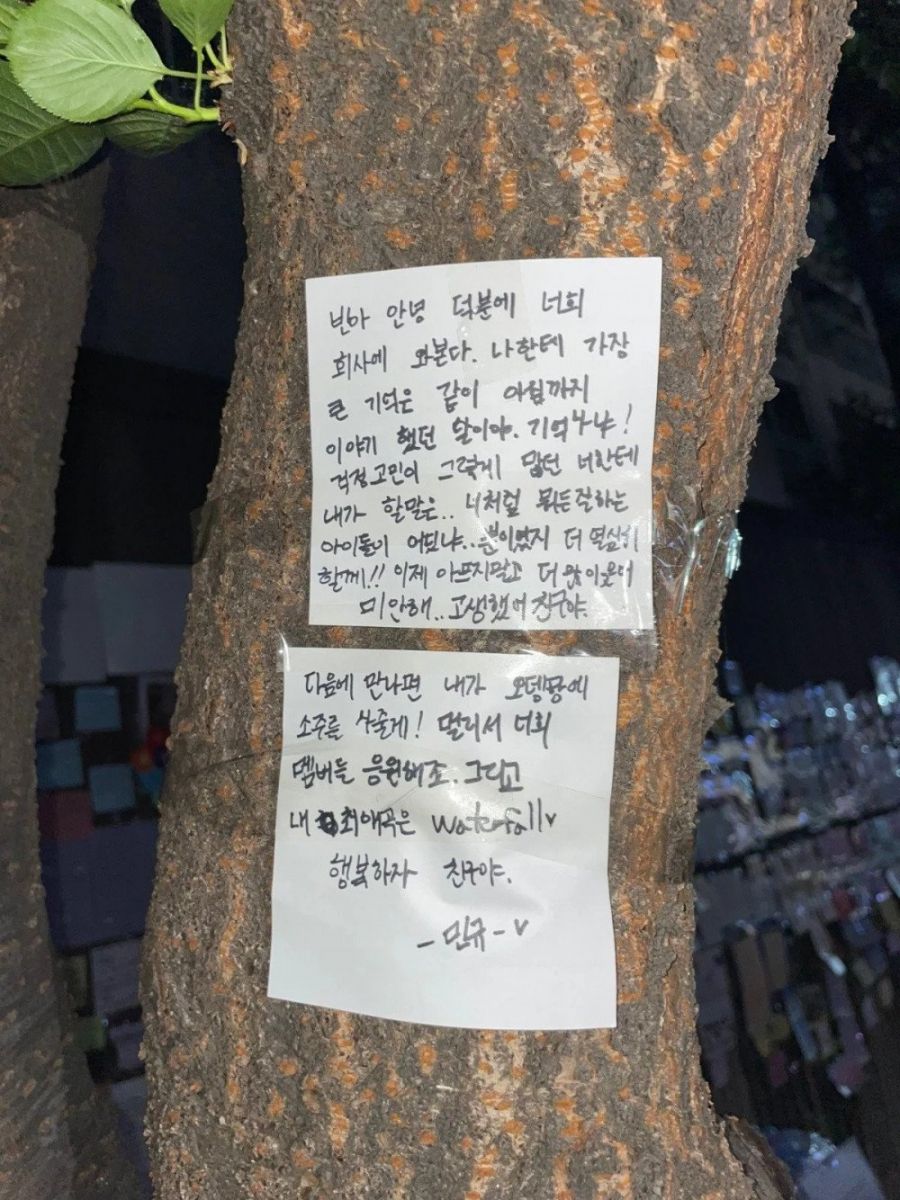 빈아 안녕 덕분에 너희
회사에 와본다. 나한테 가장
큰 기억은 같이 아침까지
이야기 했던 날이야. 기억나냐!
걱정고민이 그렇게 많던 너한테
내가 할말은.. 너처럼 뭐든잘하는
아이돌이 어딨냐.. 뿐이었지 더 열심히
할께!! 이제 아프지말고 더 많이웃어
미안해.. 고생했어 친구야.
다음에 만나면 내가 오뎅탕에
소주를 사줄게! 멀리서 너희
멤버들 응원해조. 그리고
내 최애곡은 waterfall
행복하자 친구야.
- 민규 -